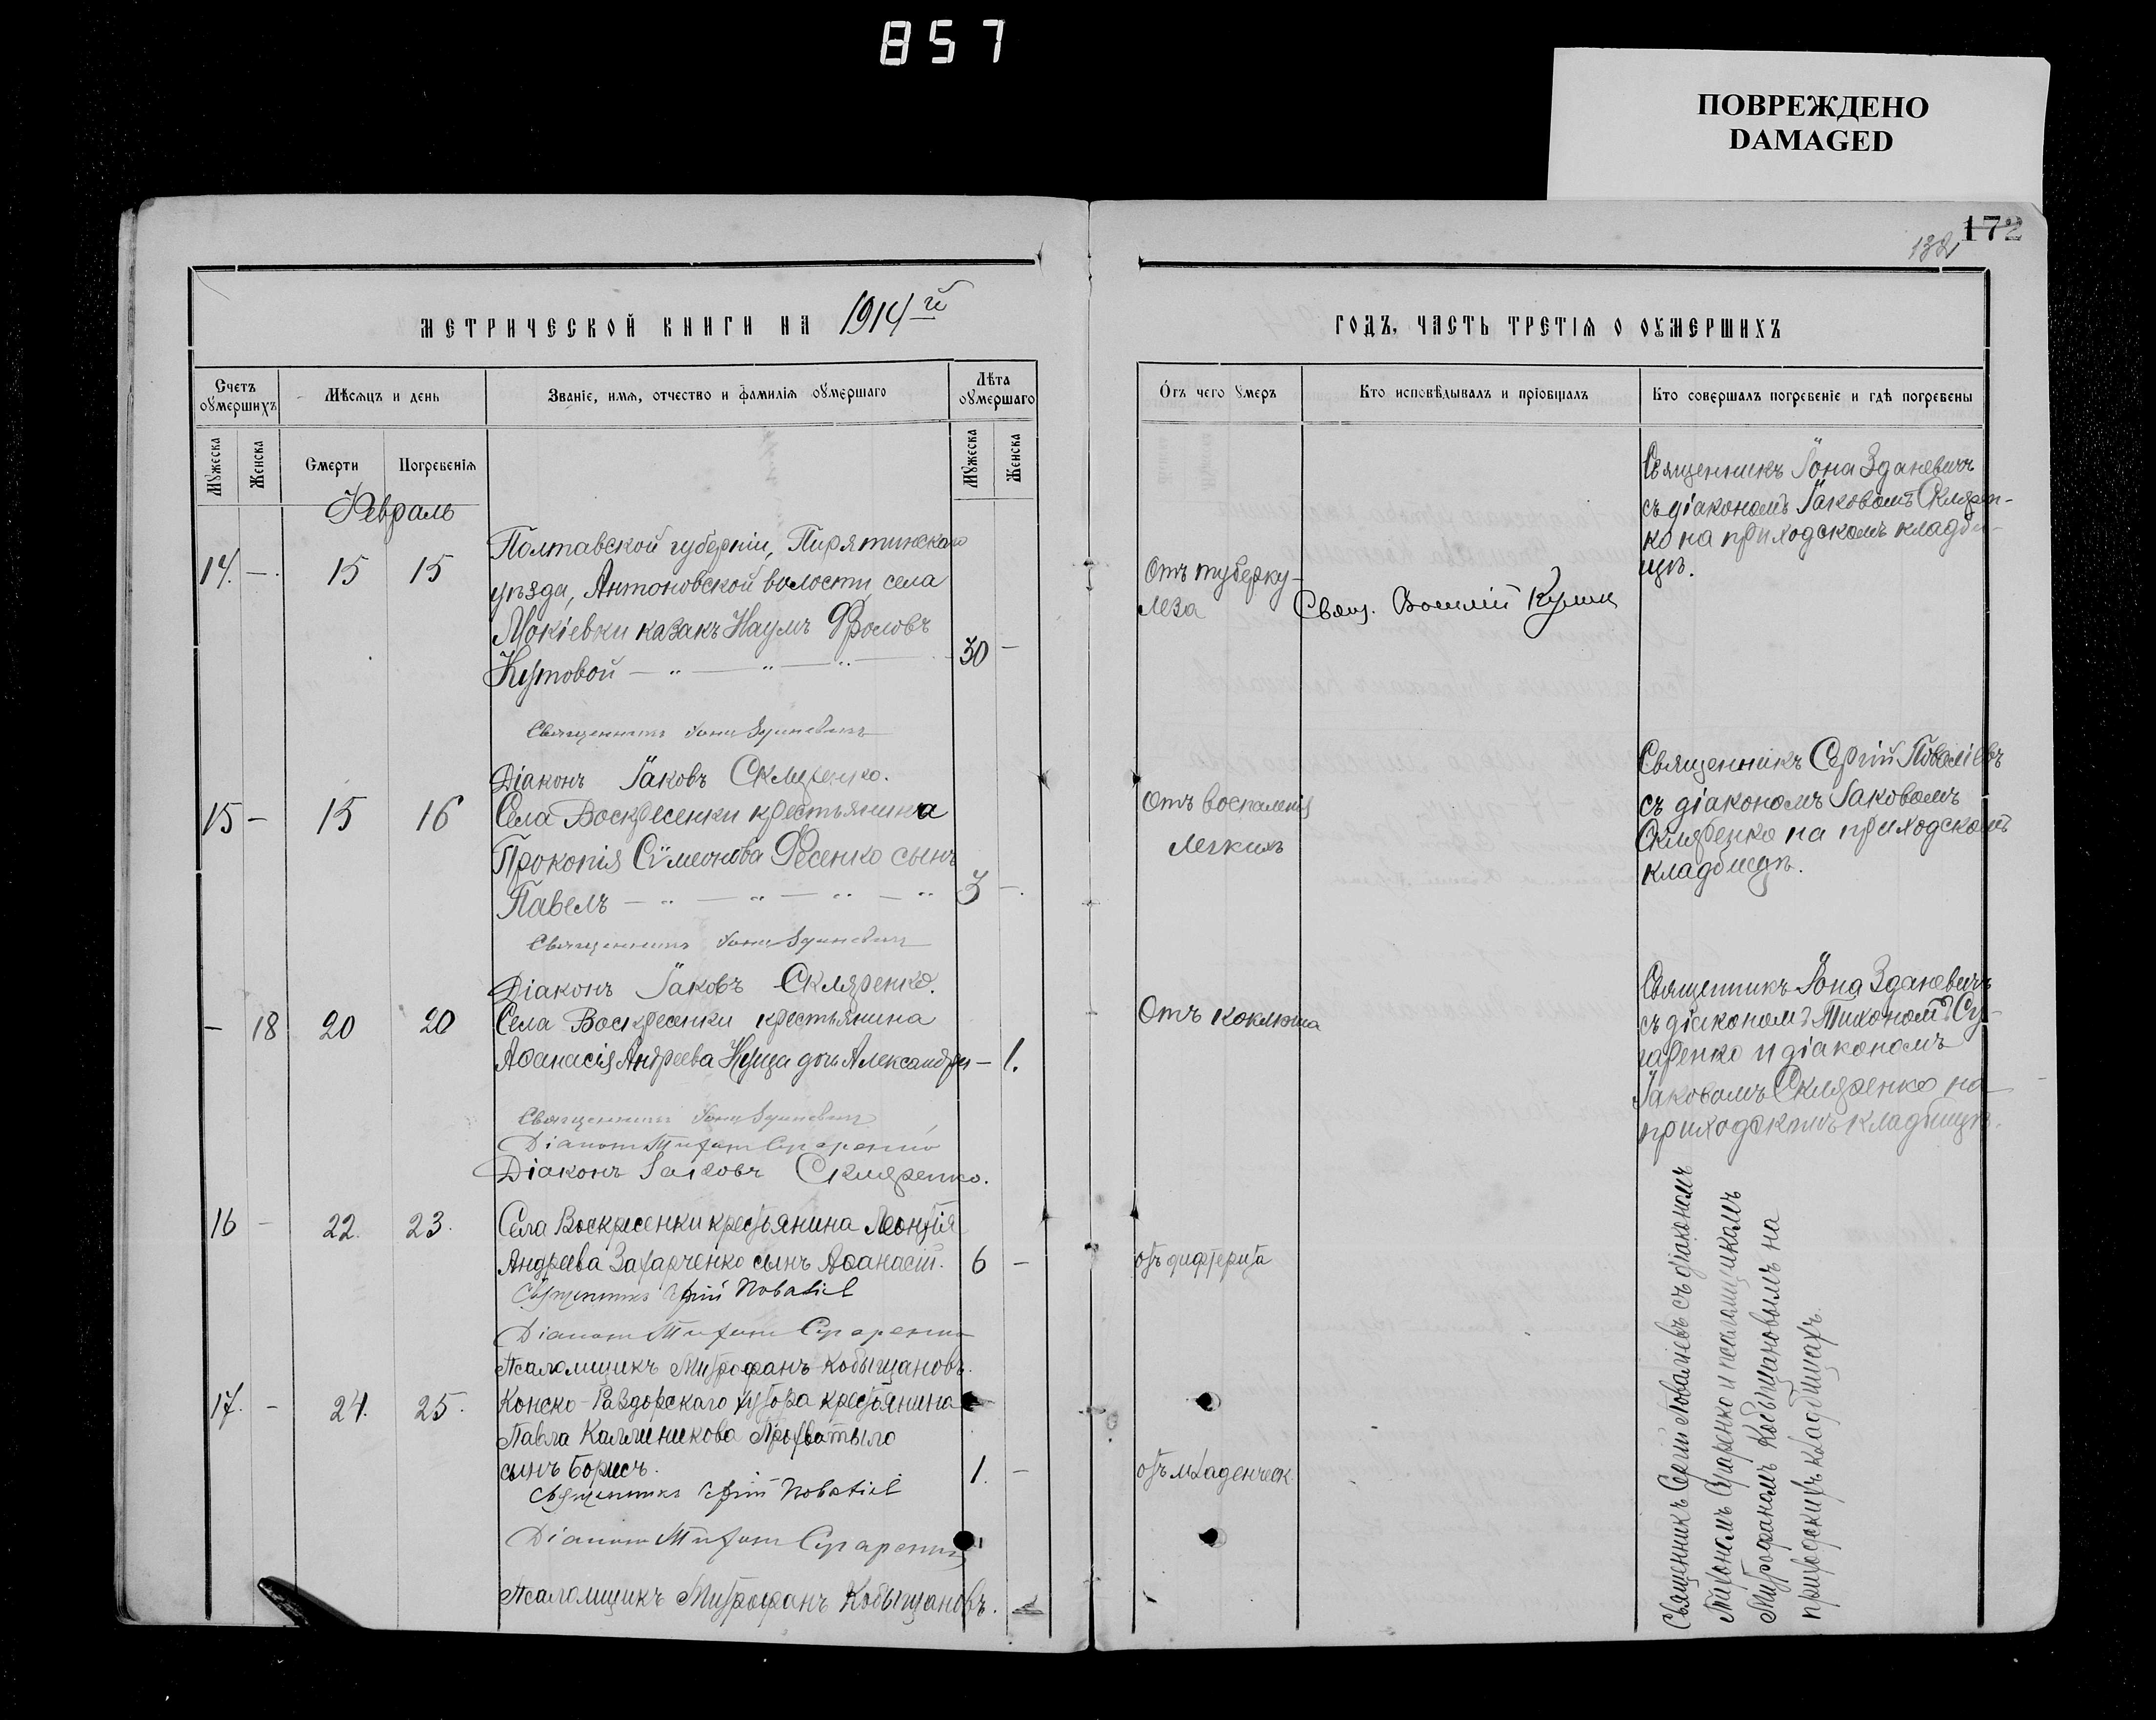 857
ПОВРЕЖДЕНО
DAMAGED
172
132
МЕТРИЧЕСКОЙ КНИГИ НА 1914 й
ГОДЪ, ЧАСТЬ ТРЕТІѦ О ОУМЕРШИХЪ
Счетъ оумершихъ
Мѣсѧцъ и день
Званіе, имѧ, отчество и фамиліѧ оумершаго
Лѣта оумершаго
Отъ чего умеръ
Кто исповѣдывалъ и пріобщалъ
Кто совершалъ погребеніе и гдѣ погребены
Мужеска
Женска
Смерти
Погребеніѧ
Мужеска
Женска
Февраль
14. — 15 15
Полтавской губерніи, Пирятинскаго
уѣзда, Антоновской волости, села
Мокіевки казакъ Наумъ Фроловъ
Кутовой — " — " — " — 30 —
Отъ туберку-
леза
Свящ. Василій
Священникъ Іона Зданевичъ
съ діакономъ Іаковомъ Склярен-
ко на приходскомъ кладби-
щѣ.
Священникъ Іона Зданевичъ
Діаконъ Іаковъ Скляренко.
15 — 15 16
Села Воскресенки крестьянина
Прокопія Сѷмеонова Фесенко сынъ
Павелъ — " — " — " — " 3 —
Отъ воспаленія
легкихъ
Священникъ Сергій Поваліевъ
съ діакономъ Іаковомъ
Скляренко на приходскомъ
кладбищѣ.
Священникъ Іона Зданевичъ
Діаконъ Іаковъ Скляренко.
— 18 20 20
Села Воскресенки крестьянина
Аѳанасія Андреева дочь Александра — 1.
Отъ коклюша
Священникъ Іона Зданевичъ
съ діакономъ Тихономъ Су-
гаренко и діакономъ
Іаковомъ Скляренко на
приходскомъ кладбищѣ.
Священникъ Іона Зданевичъ
Діаконъ Тихонъ Сугаренко
Діаконъ Іаковъ Скляренко.
16 — 22. 23.
Села Воскресенки крестьянина Леонтія
Андреева Захарченко сынъ Аѳанасій. 6 —
отъ дифтерита
Священникъ Сергій Поваліев
Діаконъ Тихонъ Сугаренко
Псаломщикъ Митрофанъ Кобыщановъ.
17. — 24. 25.
Конско-Раздорскаго хутора крестьянина
Павла Каллиникова
сынъ Борисъ. 1. —
отъ младенческ.
Священникъ Сергій Поваліев
Діаконъ Тихонъ Сугаренко
Псаломщикъ Митрофанъ Кобыщановъ.
Священникъ Сергій Поваліевъ съ діакономъ
Тихономъ Сугаренко и псаломщикомъ
Митрофаномъ Кобыщановымъ на
приходскихъ кладбищахъ.